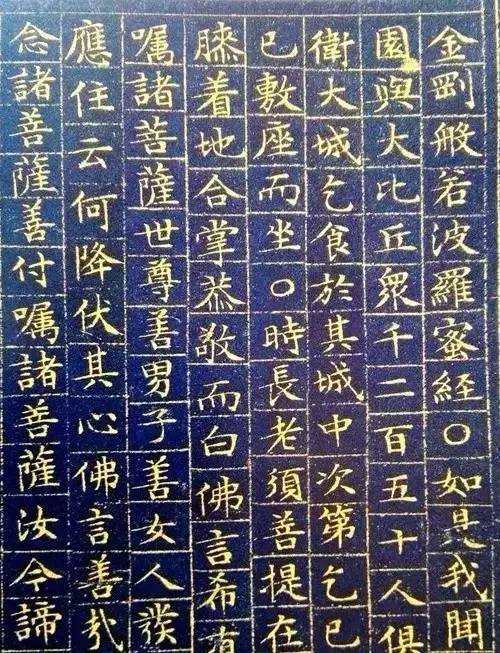 金剛般若波羅蜜経〇如是我聞
園與大比丘衆千二百五十人俱
衛大城乞食於其城中次第乞已
已敷座而坐〇時長老須菩提在
膝着地合掌恭敬而白佛言希有
嘱諸菩薩世尊善男子善女人發
應住云何降伏其心佛言善哉
念諸菩薩善付嘱諸菩薩汝今諦